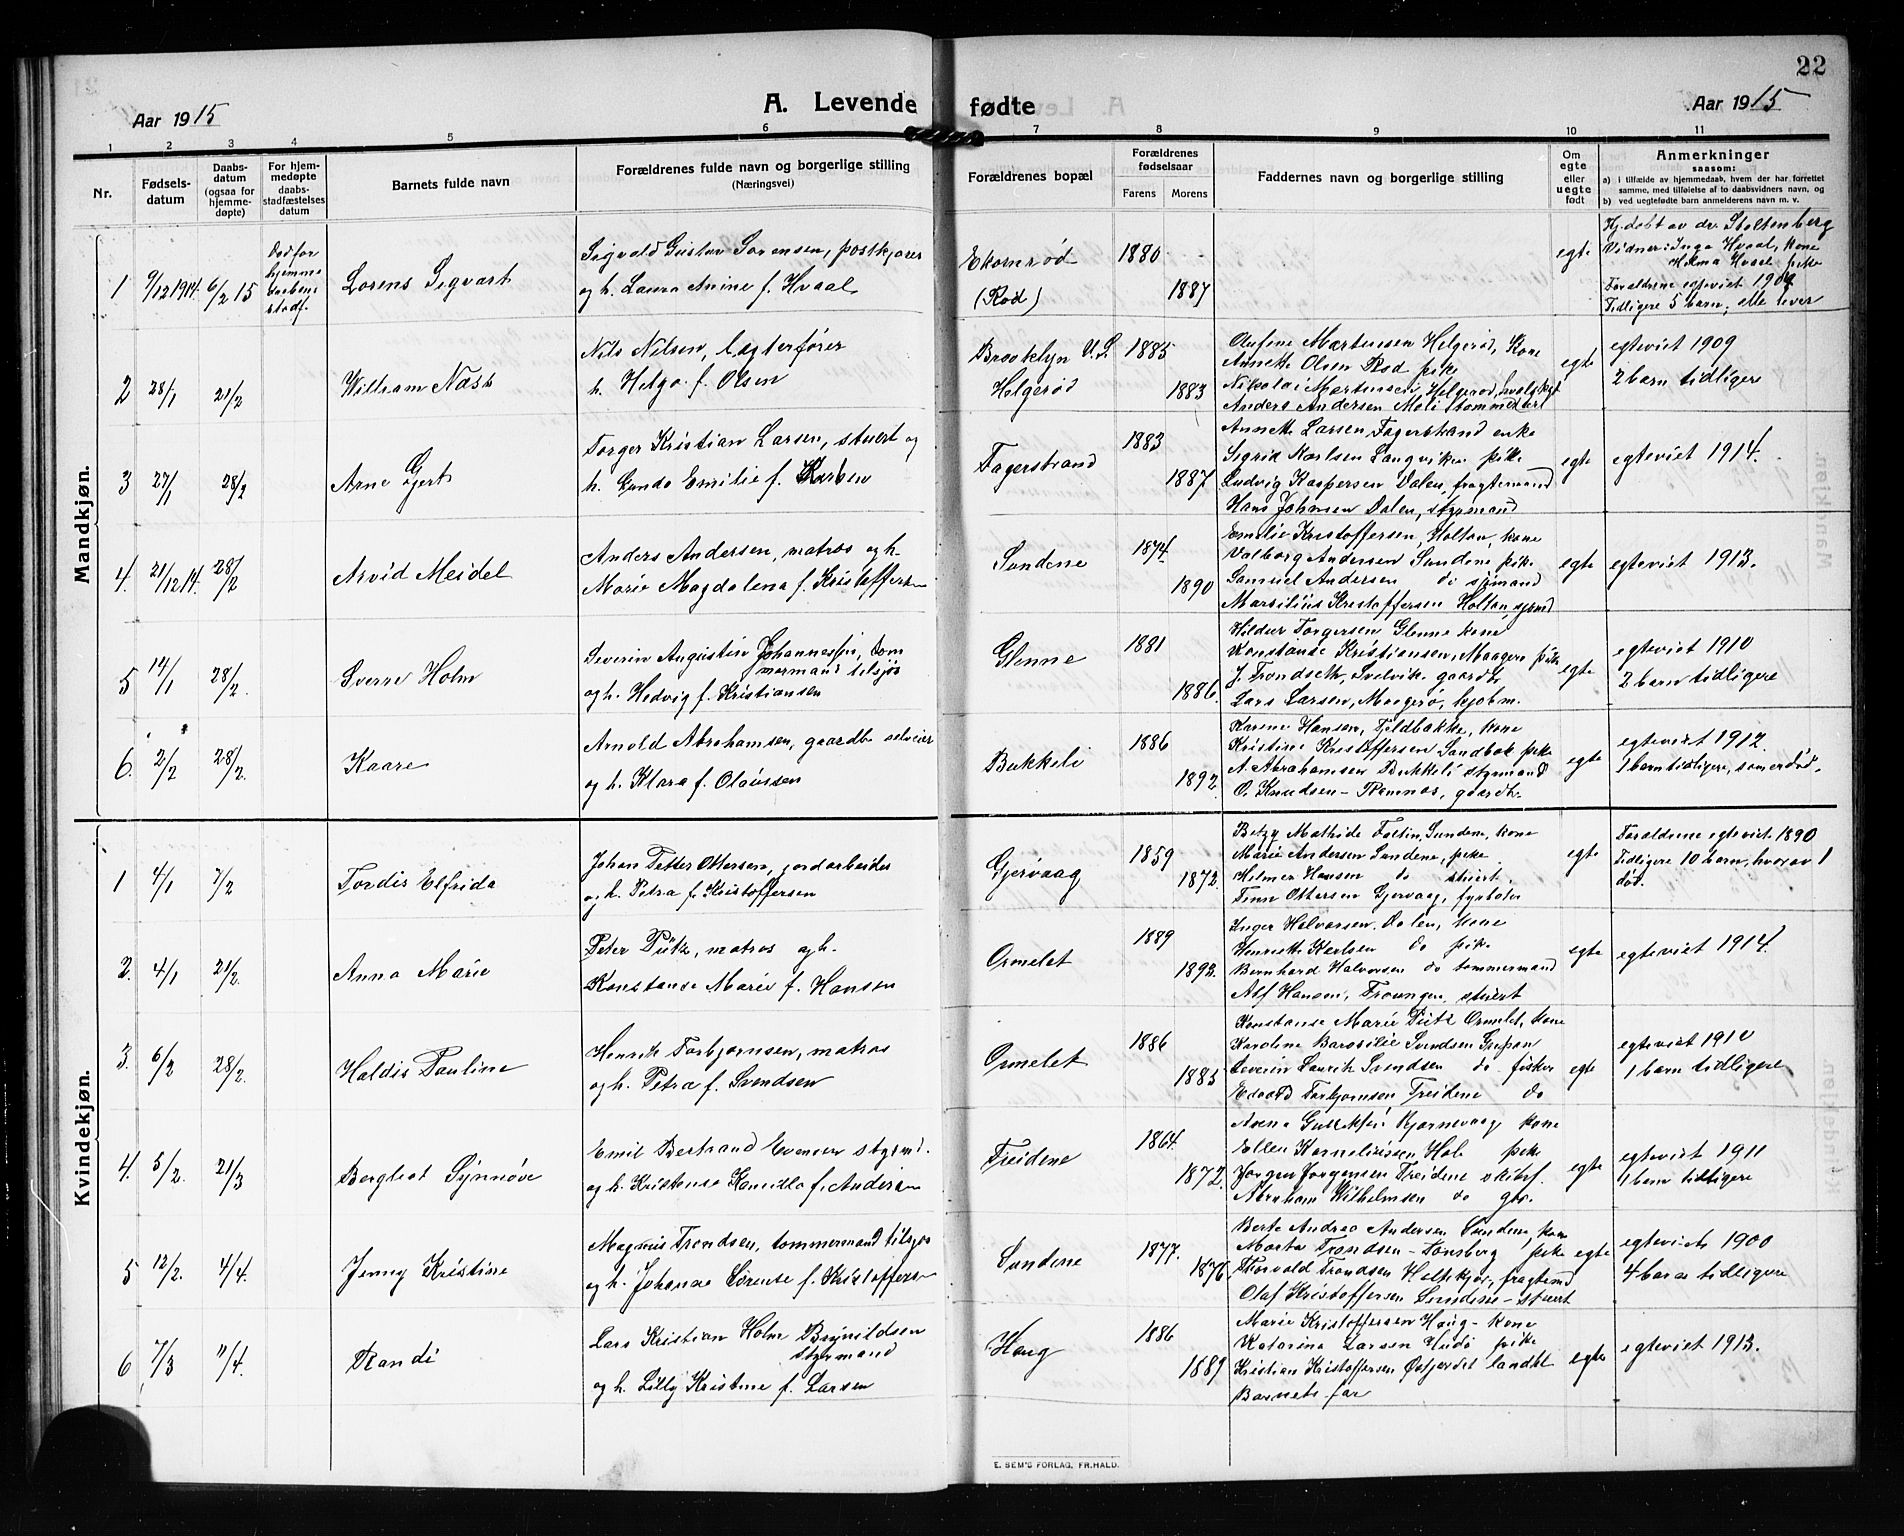 22
A. Levende fødte
Aar 1915
Aar 1915
1 2 3 4 5 6 7 8 9 10 11
Nr.
Fødsels-
datum
Daabs-
datum
(ogsaa for
hjemme-
døpte)
For hjem-
medøpte
daabs-
stadfæstelses
datum
Barnets fulde navn
Forældrenes fulde navn og borgerlige stilling
(Næringsvei)
Forældrenes bopæl
Forældrenes
fødselsaar
Farens Morens
Faddernes navn og borgerlige stilling
Om
egte
eller
uegte
født
Anmerkninger
saasom:
a) i tilfælde av hjemmedaab, hvem der har forrettet
samme, med tilføielse af to daabsvidners navn, og
b) ved uegtefødte barn anmelderens navn m. v.
Mandkjøn.
1 9/12 1914. 6/2 15
Død før
hjemme
daabens
stadf.
Lorens Sigvart
Sigvald Gustav Sørensen, postkjører
og h. Laura Anine f. Hvaal
Ekornrød
(Rød)
1880
1887
egte
Hj. døbt av dr. Stoltenberg
Vidner: Inga Hvaal, kone
Hilma Hvaal pike
Forældrene egteviet 1909
Tidligere 5 barn, alle lever
2 28/1 21/2
William Nass
Nils Nilsen, lægterfører
h. Helga f. Olsen
Brooklyn U.S.
Helgerød
1885
1883
Olufine Martinsen Helgerød, Kone
Annette Olsen Rød pike
Nikolai Martinsen, Helgerød, hvalfanger
Anders Andersen Møli tømmerkarl
egte
egteviet 1909
2 barn tidligere
3 27/1 28/2
Arne Gjert
Torger Kristian Larsen, stuert og
h. Gunda Emilie f. Karlsen
Fagerstrand
1883
1887
Annette Larsen, Fagerstrand enke
Sigrid Karlsen Langviken pike
Ludvig Kaspersen Dalen, fragtemand
Hans Johnsen Dalen, styrmand
egte
egteviet 1914.
4. 21/12 14. 28/2
Arvid Meidel
Anders Andersen, matros og h.
Marie Magdalena f. Kristoffersen
Sundene
1874
1890
Emilie Kristoffersen, Holtan, kone
Valborg Andersen Sundene pike
Samuel Andersen do sjømand
Marsilius Kristoffersen Holtan, sjømd
egte
egteviet 1913.
5 14/1 28/2.
Sverre Holm
Severin Augustin Johannessen, tøm
mermand tilsjøs
og h. Hedvig f. Kristiansen
Glenne
1881
1886.
Hildur Torgersen Glenne kone
Konstanse Kristiansen, Maagerø pike
J. Trondseth, Svelvik. gaardb.
Lars Larsen, Maagerø, kjøbm.
egte
egteviet 1910
2 barn tidligere
6. 2/2 28/2.
Kaare
Arnold Abrahamsen, gaardb. selveier
og h. Klara f. Olaussen
Bukkeli
1886
1892.
Karine Hansen, Fjeldbakke, kone
Kristine Kristoffersen Sandbæk pike
A. Abrahamsen Bukkeli styrmand
O. Knudsen – Ramnæs, gaardb.
egte
egteviet 1912.
1 barn tidligere, som er død.
Kvindekjøn.
1 4/1 7/2
Tordis Elfrida
Johan Petter Ottersen, jordarbeider
og h. Petra f. Kristoffersen
Gjervaag
1859
1872.
Betzy Mathide Foltin, Sundene, kone
Marie Andersen Sundene, pike
Hilmer Hansen do stuert.
Finn Ottersen Gjervaag, fyrbøter
egte
Forældrene egteviet 1890
Tidligere 10 barn, hvorav 1
død.
2. 4/1 21/2.
Anna Marie
Peter Pütz, matros og h.
Konstanse Marie f. Hansen
Ormelet
1889
1893.
Inger Halvorsen. Dalen, kone
Henriette Karlsen do pike
Bernhard Halvorsen do tømmermand
Alf Hansen, Traungen, stuert
egte
egteviet 1914.
3. 6/2 28/2.
Haldis Pauline
Henrik Torbjørnsen, matros
og h. Petra f. Svendsen
Ormelet
1886
1885
Konstanse Marie Pütz Ormelet, kone
Karoline Basilie Svendsen Grepan
Severin Laurits Svendsen do fisker
Edvard Torbjørnsen, Treidene do
egte
egteviet 1910
1 barn tidligere
4. 5/2. 21/3
Bergliot Synnøve
Emil Bertrand Evensen styrmd.
og h. Kristense Kamilla f. Andersen
Treidene
1864.
1872.
Anna Gulliksen Kjærnevaag kone
Ellen Kornelisssen Hole pike
Jørgen Jørgensen Treidene skibsf.
Abraham Wilhelmsen do gbr.
egte
egteviet 1911
1 barn tidligere
5 12/2. 4/4.
Jenny Kristine
Magnus Trondsen, tømmermand tilsjøs
og h. Johanne Sørense f. Kristoffersen
Sundene
1877.
1876.
Berte Andrea Andersen Sundene, kone
Marta Trondsen – Tønsberg pike
Thorvald Trondsen Holtekjær, fragtemd
Olaf Kristoffersen Sundene – stuert
egte
egteviet 1900
4 barn tidligere
6 7/3 11/4.
Randi
Lars Kristian Holm Brynildsen
styrmand
og h. Lilly Kristine f. Larsen
Haug
1886
1889
Marie Kristoffersen Haug – kone
Katarina Larsen Hudø pike
Kristian Kristoffersen Østjordet landbr
Barnets far
egte
egteviet 1913.
E. SEM'S FORLAG, FR.HALD.